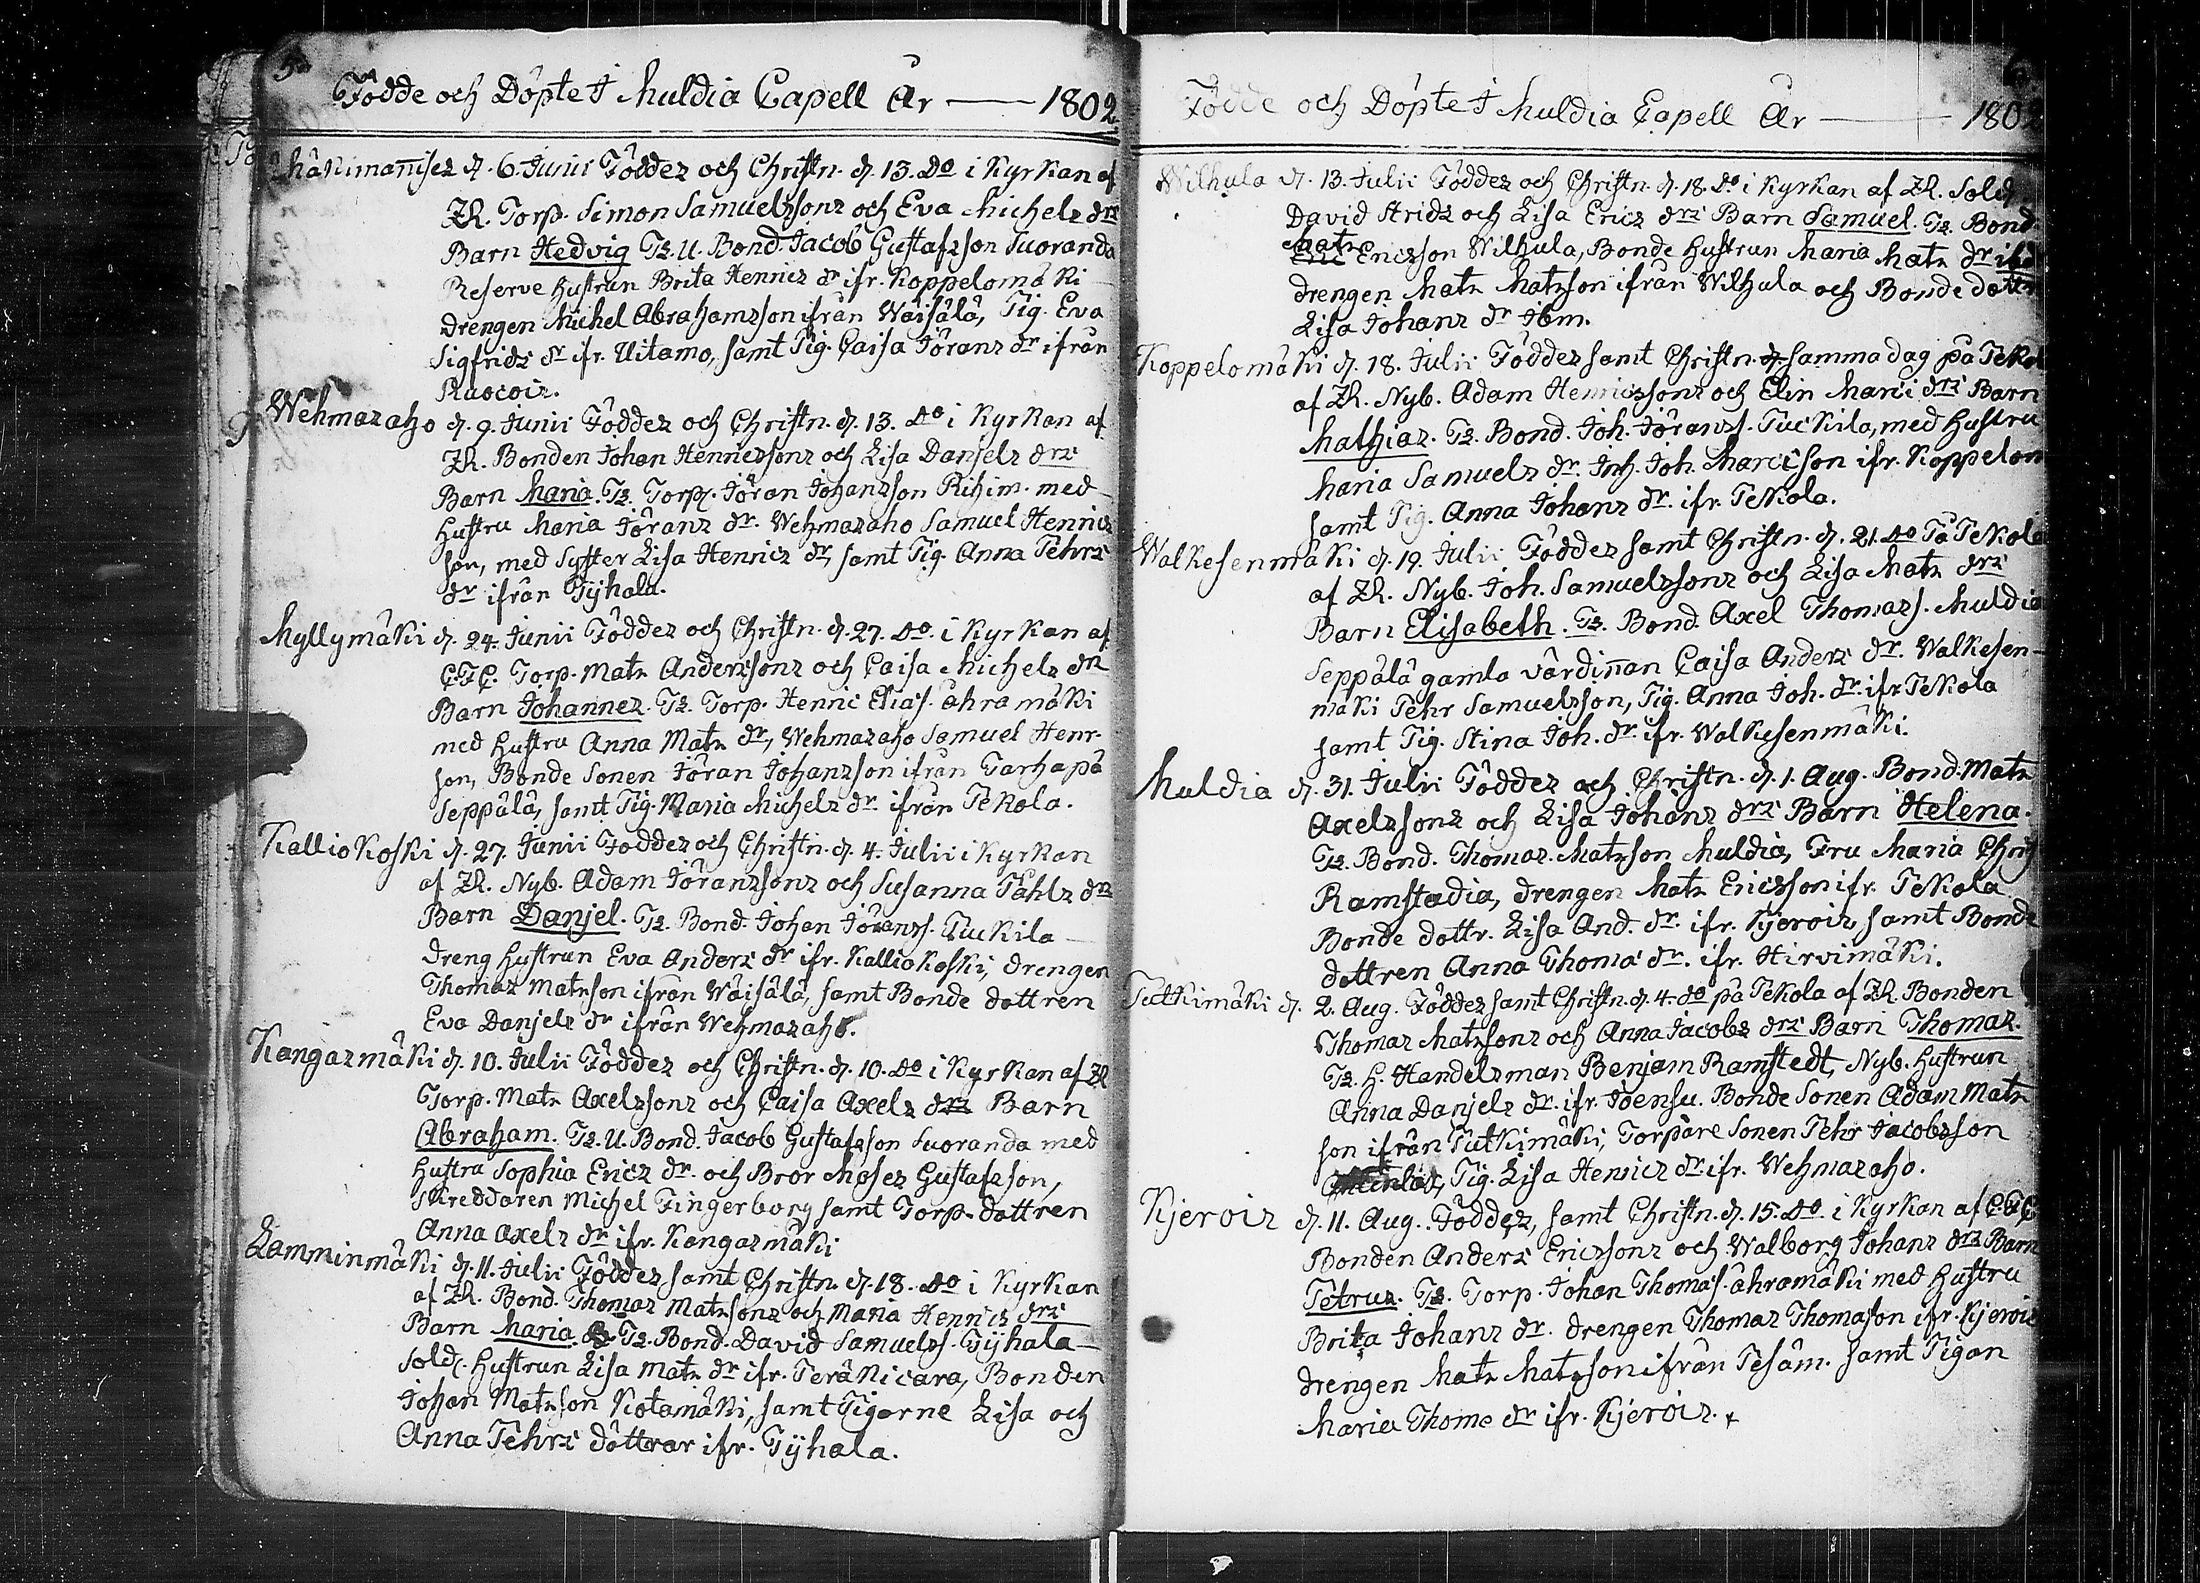 5.
Födde och Döpte I Muldia Capell År — 1802
Mäkimannises d. 6. Junii Föddes och Christn. d. 13. Do i Kyrkan af
ZR. Torp. Simon Samuelssons och Eva Michels drs
Barn Hedvig Ts. U. Bond. Jacob Gustafsson Suoranda
Reserve hustrun Brita Henrics dr ifr. Koppelomäki
drengen Michel Abrahamsson ifrån Wäisälä, Pig. Eva
Sigfrids dr ifr. Uitamo, samt Pig. Caisa Jörans dr ifrån
Wehmasaho d. 9. Junii Föddes och Christn. d. 13. Do i Kyrkan af
ZR. Bonden Johan Henricssons och Lisa Danjels drs
Barn Maria. Ts. Torp. Jöran Johansson Rihim. med
hustru Maria Jörans dr. Wehmasaho Samuel Henrics
son, med Syster Lisa Henrics dr, samt Pig. Anna Pehrs
dr ifrån Pyhala.
Myllymäki d. 24. Junii Föddes och Christn. d. 27. Do. i Kyrkan af
Torp. Mats Anderssons och Caisa Michels drs
Barn Johannes. Ts. Torp. Henric Elias. ähramäki
med hustru Anna Mats dr, Wehmasaho Samuel Henr.
son, Bonde Sonen Jöran Johansson ifrån Tarhapä
Seppälä, samt Pig. Maria Michels dr ifrån Pekola.
Kalliokoski d. 27. Junii Föddes och Christn. d. 4. Julii i Kyrkan
af ZR. Nyb. Adam Jöranssons och Susanna Påhls drs
Barn Danjel. Ts. Bond. Johan Jöranss. Tuckila
Dreng hustrun Eva Anders dr ifr. Kalliokoski, drengen
Thomas Matsson ifrån Wäisälä, samt Bonde dottren
Eva Danjels dr ifrån Wehmasaho.
Kangasmäki d. 10. Julii Föddes och Christn. d. 10. Do i Kyrkan af ZR
Torp. Mats Axelssons och Caisa Axels drs Barn
Abraham. Ts. U. Bond. Jacob Gustafsson Suoranda med
hustru Sophia Erics dr. och Bror Moses Gustafsson,
Skreddaren Michel Fingerborg samt Torp. dottren
Anna Axels dr ifr. Kangasmäki
Lamminmäki d. 11. Julii Föddes samt Christn. d. 18. Do i Kyrkan
af ZR. Bond. Thomas Matssons och Maria Henrics drs
Barn Maria. Ts. Bond. David Samuelss. Pyhala
Sold. hustrun Lisa Mats dr ifr. Peränicara, Bonden
Johan Matsson Kotamäki, samt Pigorne Lisa och
Anna Pehrs döttrar ifr. Pyhala.
Födde och Döpte I Muldia Capell År — 1802
Wilhula d. 13. Julii Föddes och Christn. d. 18. Do i Kyrkan af ZR. Sold.
David Strids och Lisa Erics drs Barn Samuel. Ts. Bond.
Mats
Ericsson Wilhula, Bonde hustrun Maria Mats dr ibd
drengen Mats Matsson ifrån Wilhula och Bonde dottr
Lisa Johans dr Ibm.
Koppelomäki d. 18. Julii Föddes samt Christn. samma dag på Pekol
af ZR. Nyb. Adam Henricssons och Elin Marci drs Barn
Mathias. Ts. Bond. Joh. Jöranss. Tuckila, med hustru
Maria Samuels dr. Inh. Joh. Marcison ifr. Koppelom
samt Pig. Anna Johans dr. ifr. Pekola.
Walkesenmäki d. 19. Julii Föddes samt Christn. d. 21. Do På Pekola
af ZR. Nyb. Joh. Samuelssons och Lisa Mats drs
Barn Elisabeth. Ts. Bond. Axel Thomass. Muldia
Seppälä gamla värdinnan Caisa Anders dr. Walkesen-
mäki Pehr Samuelsson, Pig. Anna Joh. dr. ifr. Pekola
samt Pig. Stina Joh. dr. ifr. Walkesenmäki.
Muldia d. 31. Julii Föddes och Christn. d. 1. Aug. Bond. Mats
Axelssons och Lisa Johans drs Barn Helena.
Ts. Bond. Thomas Matsson Muldia, Fru Maria Christ
Ramstadia, drengen Mats Ericsson ifr. Pekola
Bonde dottr. Lisa And. dr. ifr. Kjerois samt Bonde
dottren Anna Thomas dr. ifr. Hirvimäki.
Putkimäki d. 2. Aug. Föddes samt Christn. d. 4. do på Pekola af ZR. Bonden
Thomas Matssons och Anna Jacobs drs Barn Thomas.
Ts. H. Handelsman Benjam Ramstedt, Nyb. hustrun
Anna Danjels dr. ifr. Joensu. Bonde Sonen Adam Mats
son ifrån Putkimäki, Torpare Sonen Pehr Jacobsson
Pig. Lisa Henrics dr ifr. Wehmasaho.
Kjerois d. 11. Aug. Föddes, samt Christn. d. 15. Do. i Kyrkan af
Bonden Anders Ericssons och Walborg Johans drs Barn
Petrus. Ts. Torp. Johan Thomas. ähramäki med hustru
Brita Johans dr. drengen Thomas Thomasson ifr. Kjerois
drengen Mats Matsson ifrån Pesäm. samt Pigan
Maria Thome dr ifr. Kjerois.